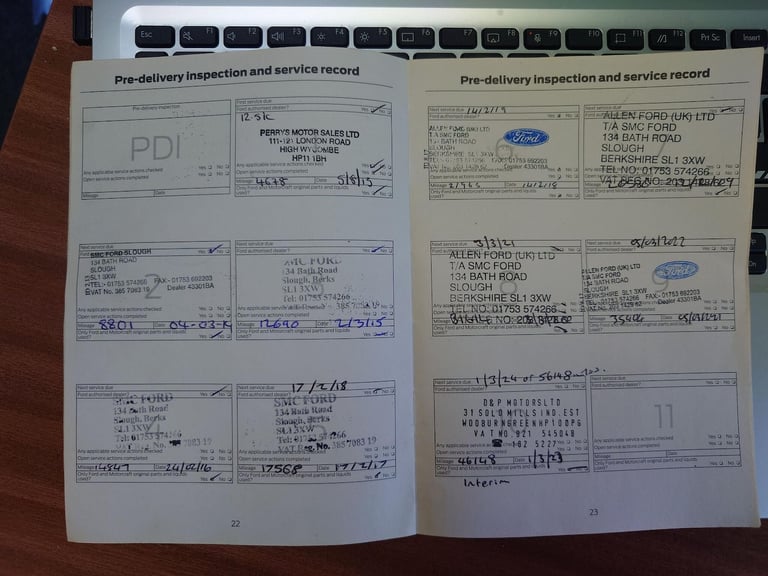 Esc F1 F2 F3 F4 F5 F6 F7 F8 F9 F10 F11 F12 Prt Sc Insert
Pre-delivery inspection and service record
Pre-delivery inspection
PDI
Any applicable service actions checked Yes No
Open service actions completed Yes No
Mileage Date
Next service due
Ford authorised dealer? Yes No
12.5k
PERRYS MOTOR SALES LTD
111-121 LONDON ROAD
HIGH WYCOMBE
HP11 1BH
Any applicable service actions checked Yes No
Open service actions completed Yes No
Mileage 4678 Date 5/8/15
Only Ford and Motorcraft original parts and liquids used? Yes No
Next service due
SMC FORD SLOUGH Yes No
134 BATH ROAD
SLOUGH
SL1 3XW
TEL:- 01753 574266 FAX - 01753 692203
VAT No. 385 7083 19 Dealer 43301BA
2
Any applicable service actions checked Yes No
Open service actions completed Yes No
Mileage 8801 Date 04-03-
Only Ford and Motorcraft original parts and liquids used? Yes No
Next service due
Ford authorised dealer? Yes No
SMC FORD
134 Bath Road
Slough, Berks
SL1 3XW
Tel: 01753 574266
385 7083 19
Any applicable service actions checked Yes No
Open service actions completed Yes No
Mileage 12690 Date 2/3/15
Only Ford and Motorcraft original parts and liquids used? Yes No
Next service due
Ford authorised dealer? Yes No
SMC FORD
134 Bath Road
Slough, Berks
SL1 3XW
Tel: 01753 574266
VAT Reg. No. 7083 19
Any applicable service actions checked Yes No
Open service actions completed Yes No
Mileage 14847 Date 24/02/16
Only Ford and Motorcraft original parts and liquids used? Yes No
17/2/18
Next service due
Ford authorised dealer? Yes No
SMC FORD
134 Bath Road
Slough, Berks
SL1 3XW
Tel: 01753 574266
VAT Reg. No. 385 7083 19
Any applicable service actions checked Yes No
Open service actions completed Yes No
Mileage 17568 Date 17/2/17
Only Ford and Motorcraft original parts and liquids used? Yes No
22
Pre-delivery inspection and service record
Next service due 14/2/19
Ford authorised dealer? Yes No
ALLEN FORD (UK) LTD
T/A SMC FORD
134 BATH ROAD
SLOUGH
Ford
6
FAX:- 01753 692203
Dealer 43301BA
Open service actions completed Yes No
Mileage Date 14/2/18
Only Ford and Motorcraft original parts and liquids used? Yes No
Next service due
ALLEN FORD (UK) LTD
T/A SMC FORD
134 BATH ROAD
SLOUGH
BERKSHIRE SL1 3XW
TEL NO: 01753 574266
VAT REG NO:
Only Ford and Motorcraft original parts and liquids used? Yes No
Next service due 3/3/21
ALLEN FORD (UK) LTD
T/A SMC FORD
134 BATH ROAD
SLOUGH
BERKSHIRE SL1 3XW
TEL NO: 01753 574266
8
Only Ford and Motorcraft original parts and liquids used? Yes No
Next service due 05/03/2022
Ford authorised dealer? Yes No
ALLEN FORD (UK) LTD
T/A SMC FORD
134 BATH ROAD
SLOUGH
BERKSHIRE SL1 3XW
Ford
9
FAX:- 01753 692203
Dealer 43301BA
Mileage 35426 Date 05/03/2021
Only Ford and Motorcraft original parts and liquids used? Yes No
Next service due 1/3/24 or 56148
Ford authorised dealer? Yes No
D&P MOTORSLTD
31 SOLO MILLS IND.EST
WOOBURNGREENHP100PG
VAT NO.921 5450 48
Any applicable service actions checked Yes No
Open service actions completed Yes No
Mileage 46148 Date 1/3/23
Only Ford and Motorcraft original parts and liquids used? Yes No
Interim
Next service due
Ford authorised dealer? Yes No
11
Any applicable service actions checked Yes No
Open service actions completed Yes No
Mileage Date
Only Ford and Motorcraft original parts and liquids used? Yes No
23